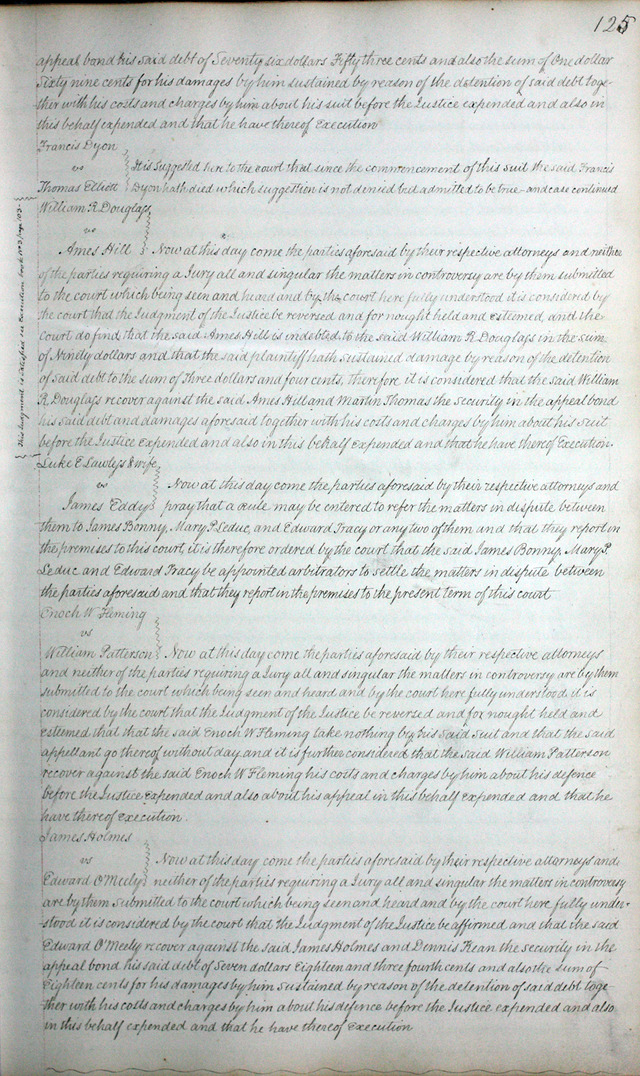 125
appeal bond his said debt of Seventy six dollars Fifty three cents and also the sum of One dollar
Sixty nine cents for his damages by him sustained by reason of the detention of said debt toge-
ther with his costs and charges by him about his suit before the Justice expended and also in
this behalf expended and that he have thereof Execution
Francis Dyon
vs
It is Suggested here to the court that since the commencement of this suit the said Francis
Thomas Elliott Dyon hath died which suggestion is not denied but admitted to be true - and case continued
William R. Douglass
vs
Ames Hill Now at this day come the parties aforesaid by their respective attorneys and neither
of the parties requiring a Jury all and singular the matters in controversy are by them submitted
to the court which being seen and heard and by the court here fully understood it is considered by
the court that the Judgment of the Justice be reversed and for nought held and esteemed, and the
court do find that the said Ames Hill is indebted to the said William R. Douglass in the sum
of Ninety dollars and that the said plaintiff hath sustained damage by reason of the detention
of said debt to the sum of Three dollars and four cents, therefore it is considered that the said William
R. Douglass recover against the said Ames Hill and Martin Thomas the Security in the appeal bond
his said debt and damages aforesaid together with his costs and charges by him about his Suit
before the Justice Expended and also in this behalf expended and that he have thereof Execution.
This Judgment is Satisfied on Execution book No 3 page 103
Luke E Lawless & wife
vs
Now at this day come the parties aforesaid by their respective attorneys and
James Eddy pray that a rule may be entered to refer the matters in dispute between
them to James Bonny, Mary P. Leduc, and Edward Tracy or any two of them and that they report in
the premises to this court, it is therefore ordered by the court that the said James Bonny, Mary P.
Leduc and Edward Tracy be appointed arbitrators to settle the matters in dispute between
the parties aforesaid and that they report in the premises to the present term of this court
Enoch W Fleming
vs
William Patterson Now at this day come the parties aforesaid by their respective attorneys
and neither of the parties requiring a Jury all and singular the matters in controversy are by them
submitted to the court which being seen and heard and by the court here fully understood it is
considered by the court that the Judgment of the Justice be reversed and for nought held and
esteemed that that the said Enoch W Fleming take nothing by his Said Suit and that the said
appellant go thereof without day and it is further considered that the said William Patterson
recover against the said Enoch W Fleming his costs and charges by him about his defence
before the Justice Expended and also about his appeal in this behalf expended and that he
have thereof execution.
James Holmes
vs
Now at this day come the parties aforesaid by their respective attorneys and
Edward O'Meely neither of the parties requiring a Jury all and singular the matters in controversy
are by them submitted to the court which being seen and heard and by the court here fully under-
stood it is considered by the court that the Judgment of the Justice be affirmed and that the said
Edward O'Meely recover against the said James Holmes and Dennis Kean the security in the
appeal bond his said debt of Seven dollars Eighteen and three fourth cents and also the sum of
Eighteen cents for his damages by him Sustained by reason of the detention of said debt toge-
ther with his costs and charges by him about his defence before the Justice expended and also
in this behalf expended and that he have thereof Execution